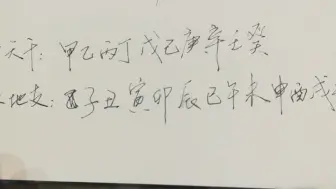 天干: 甲乙丙丁戊己庚辛壬癸
地支: 子丑寅卯辰巳午未申酉戌